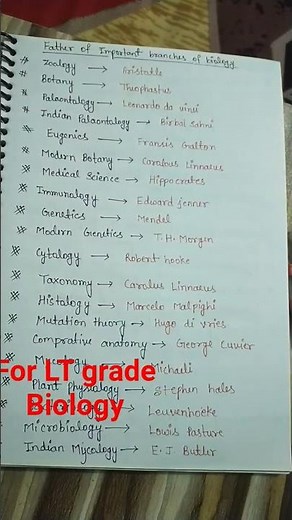 Father of Important branches of biology
* Zoology → Aristotle
* Botany → Theophastus
* Palaontology → Leonardo da vinci
* Indian Palaontology → Birbal Sahni
* Eugenics → Fransis Galton
* Modern Botany → Carolous Linnaeus
* Medical Science → Hippocrates
* Immunology → Edward Jenner
* Genetics → Mendel
* Modern Genetics → T.H. Morgan
* Cytology → Robert hooke
* Taxonomy → Carolus Linnaeus
* Histology → Marcelo Malpighi
* Mutation theory → Hugo di vries
* Comprative anatomy → George Cuvier
* Mycology → Michaeli
For LT grade
* Plant Physiology → Stephen hales
Biology
→ Leuvenhoeke
* Microbiology → Lowis Pasture
Indian Mycology → E.J Butler